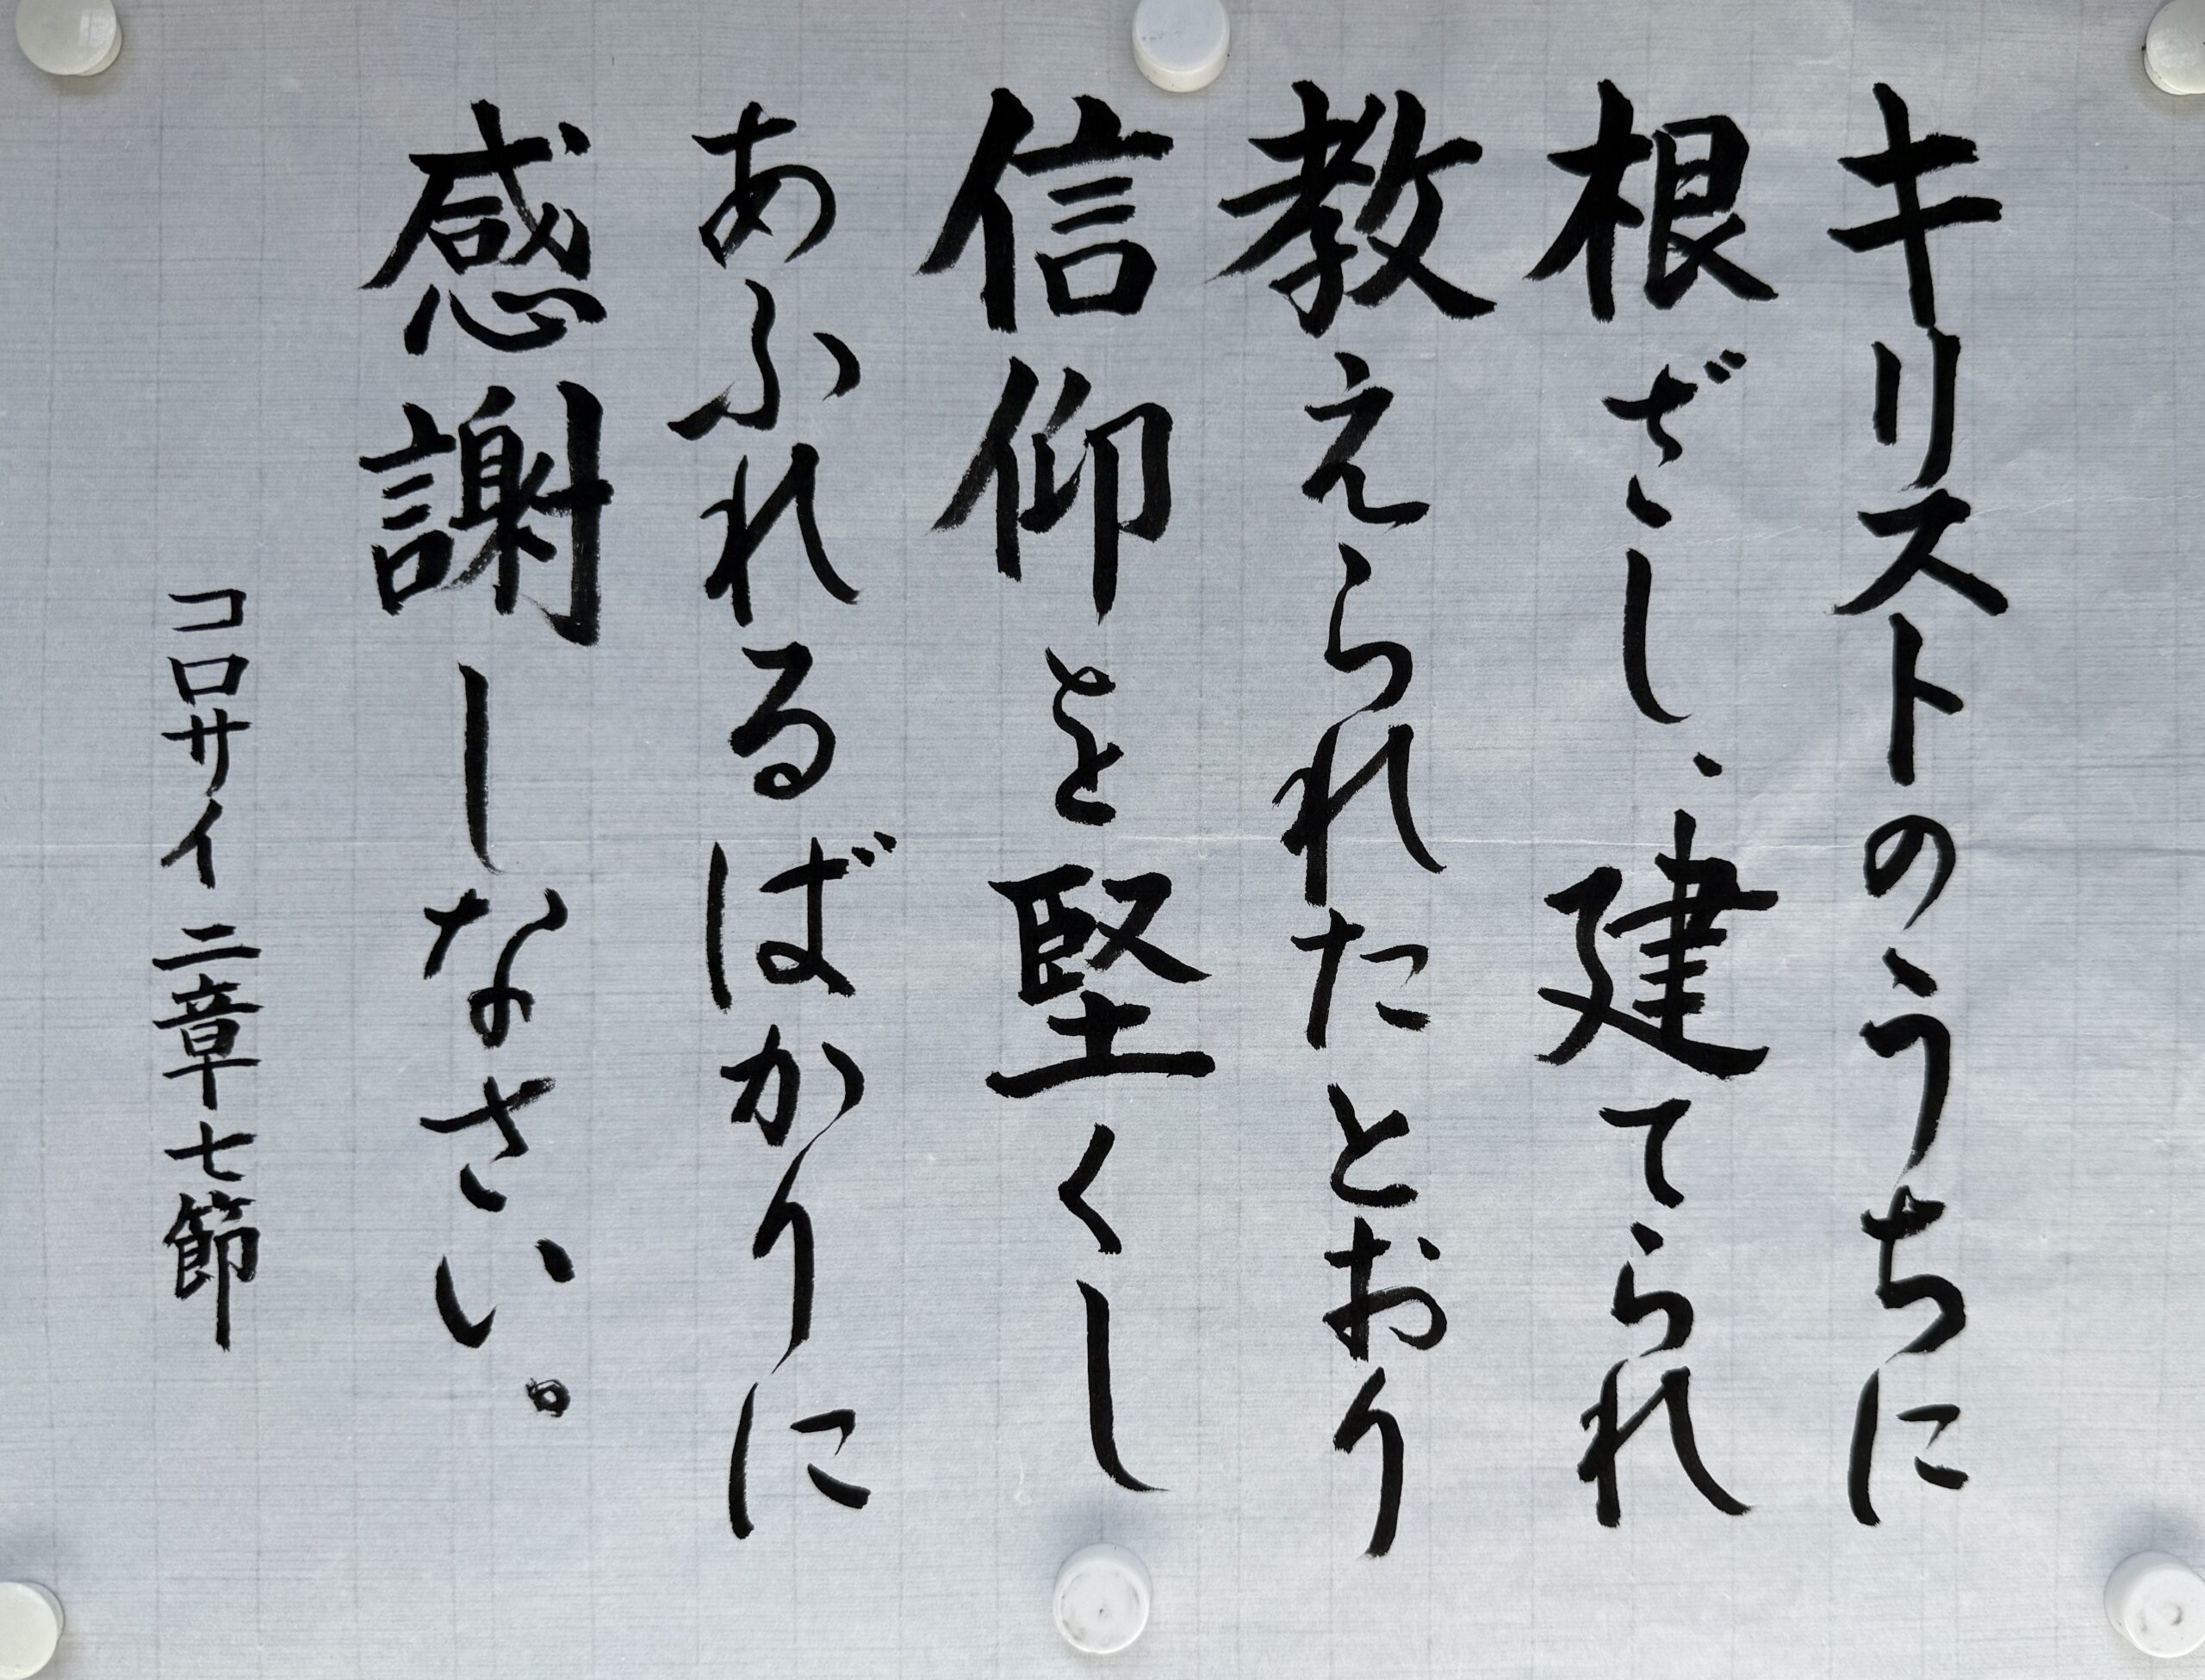 キリストのうちに
根ざし、建てられ
教えられたとおり
信仰を堅くし
あふれるばかりに
感謝しなさい。
コロサイ二章七節